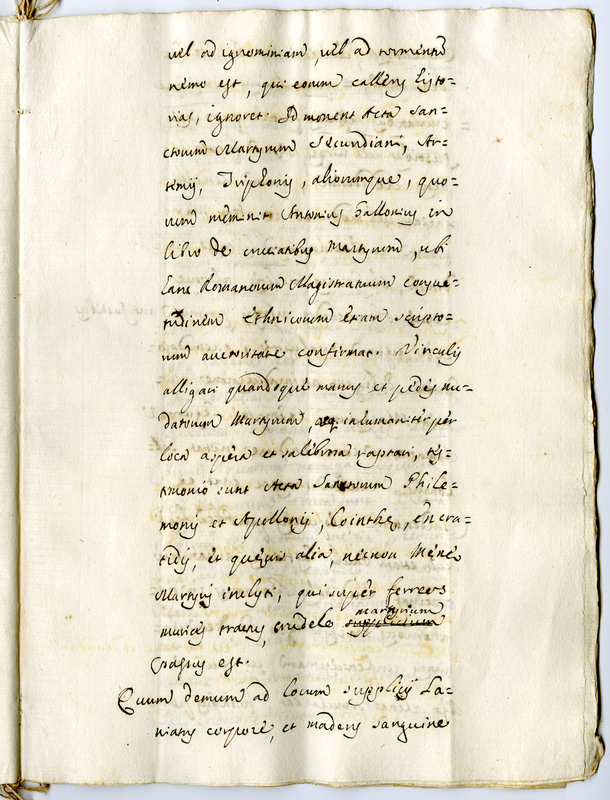 vel ad ignominiam, vel ad tormentũ
nemo est, qui eorum callens histo=
rias, ignoret. Id monent Acta San=
ctorum Martyrum Secundiani, Ar=
temij, Triphonij, aliorumque, quo=
rum meminit Antonius Gallonius in
libro de cruciatibus Martyrum, ubi
hanc Romanorum Magistratuum consue=
tudinem Ethnicorum etiam scripto=
rum auctoritate confirmat. Vinculis
alligari quandoque manus et pedes nu=
datorum Martyrum, inhumaniter per
loca aspera et salebrosa raptari, tes=
timonio sunt Acta Sanctorum Phile=
monis et Apollonij, Cointhe, Encra=
tidis, et quamvis alia, necnon Menę
Martyris inclyti, qui super ferreos
murices tractus, crudele martyrium
supplicium
passus est.
Quum demum ad locum supplicij la=
niatus corpore, et madens sanguine